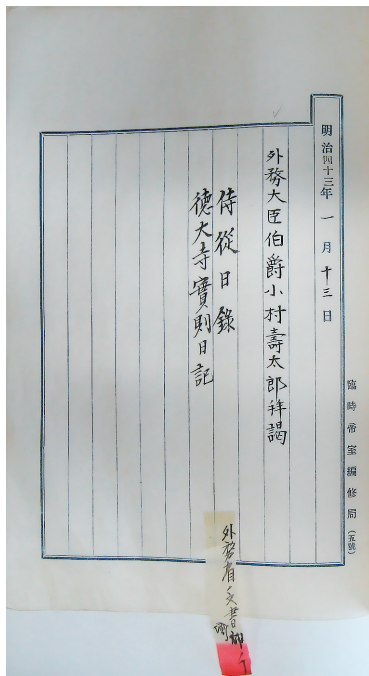 明治四十三年 一月十三日
外務大臣伯爵小村壽太郎拜謁
侍從日錄
德大寺實則日記
臨時帝室編修局 (五號)
外務省文書